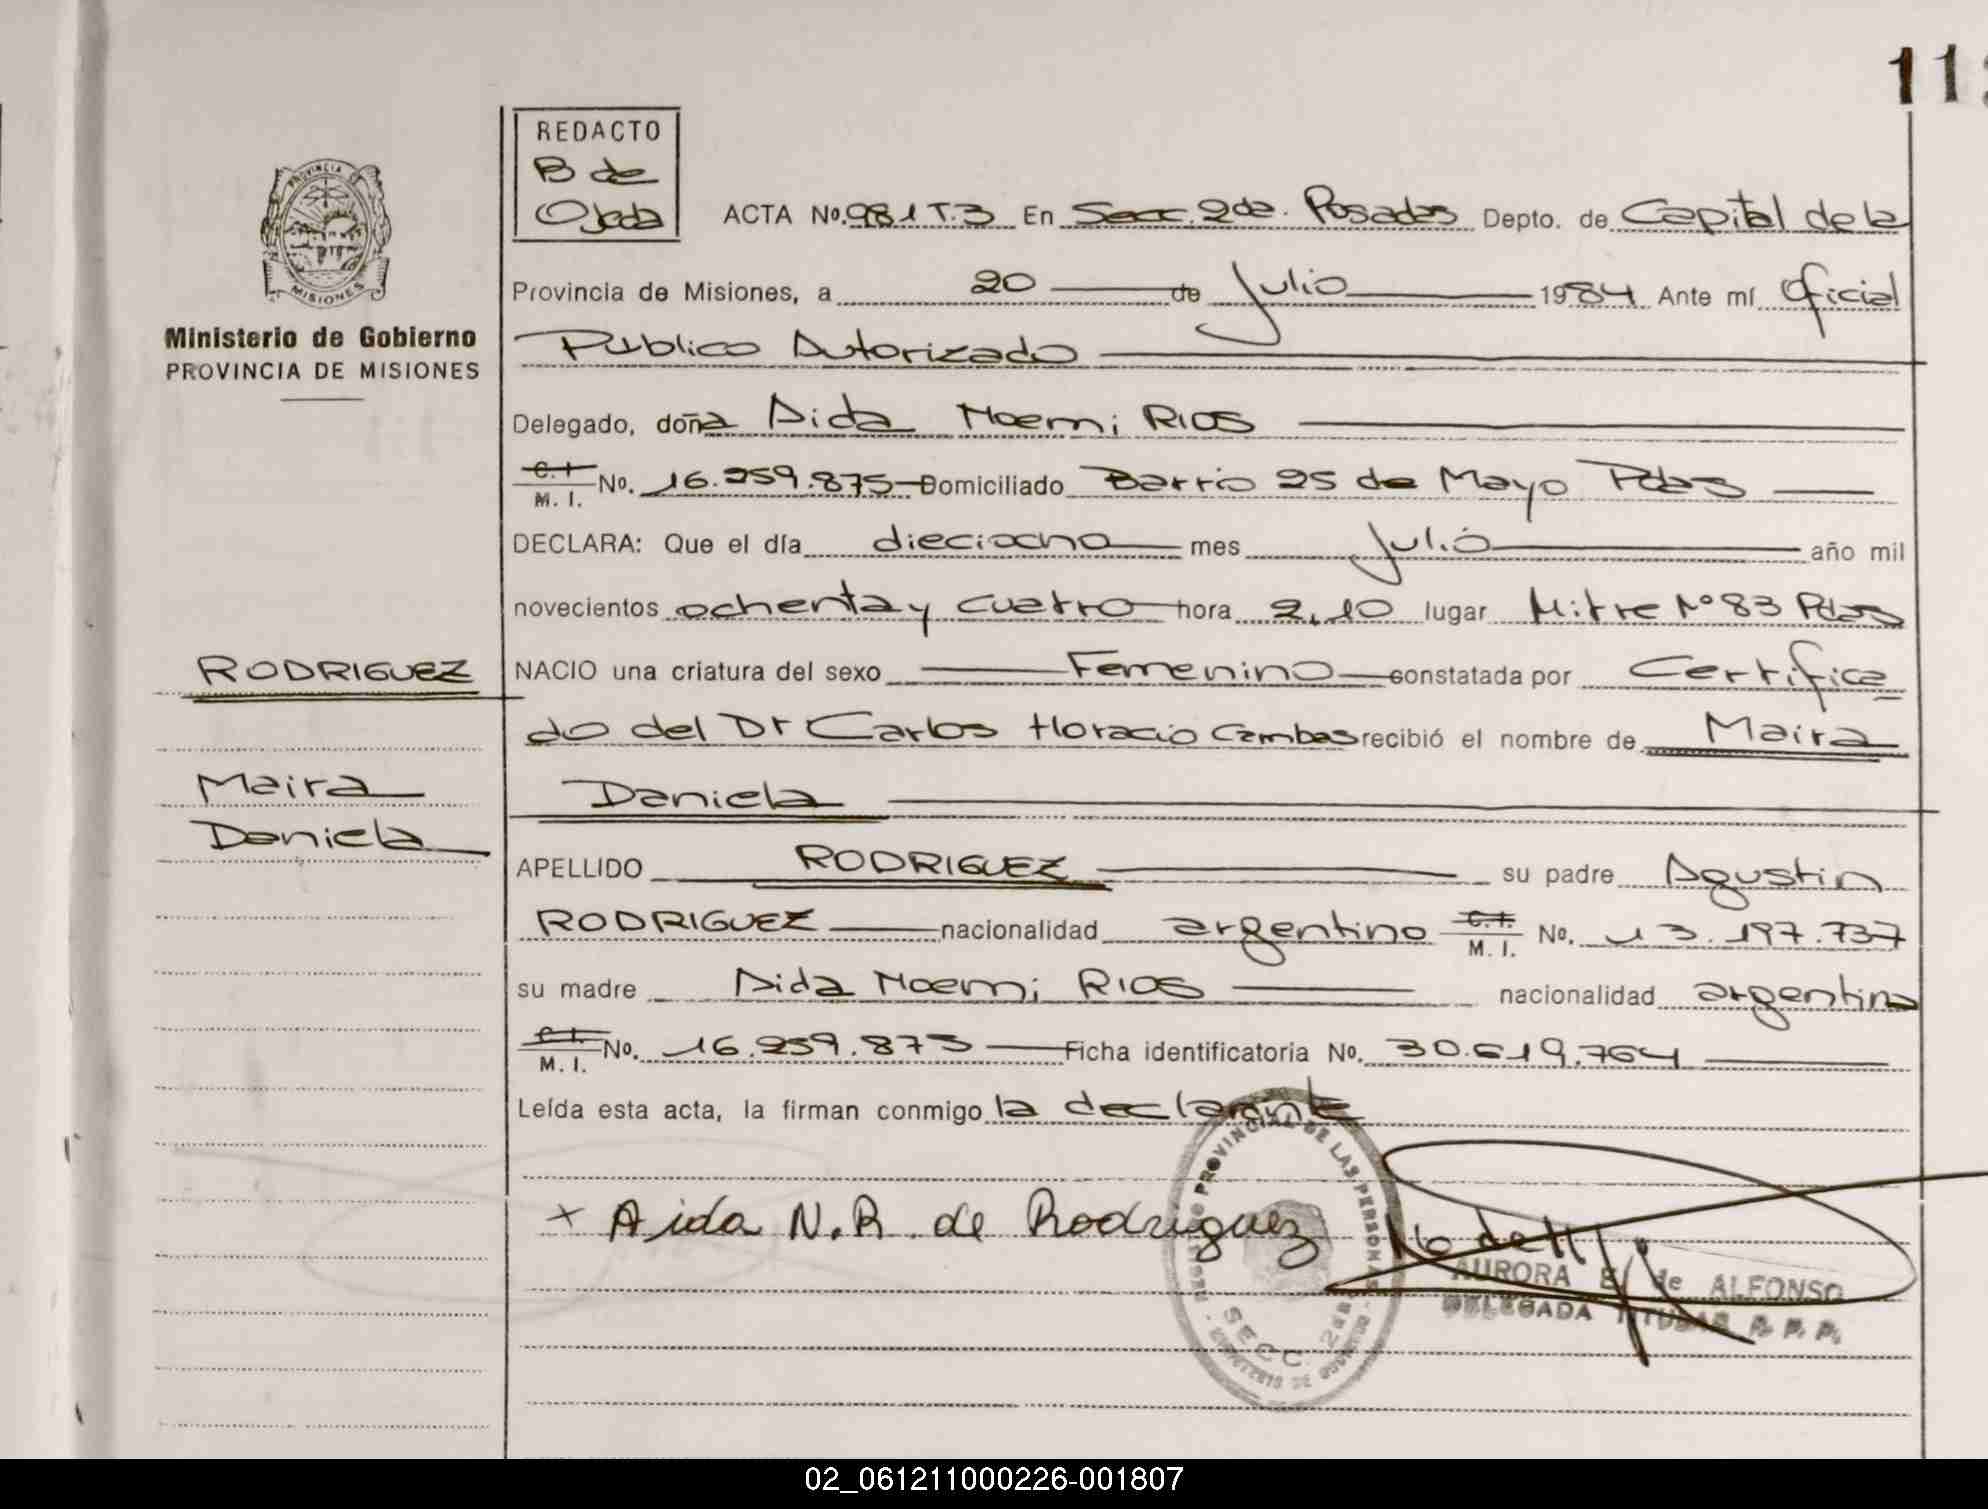 11
REDACTO
B de
Ojeda
ACTA No. 981 T.3 En Secc. 2da. Posadas Depto. de Capital de la
PROVINCIA DE
MISIONES
Provincia de Misiones, a 20 de Julio 1984 Ante mí Oficial
Ministerio de Gobierno
PROVINCIA DE MISIONES
Publico Autorizado
Delegado, doña Aida Noemi RIOS
C. I.
M. I. No. 16.259.875 Domiciliado Barrio 25 de Mayo Pdas
DECLARA: Que el día dieciocho mes Julio año mil
novecientos ochenta y cuatro hora 2,10 lugar Mitre Nº 83 Pdas
RODRIGUEZ
NACIO una criatura del sexo Femenino constatada por Certifica=
do del Dr Carlos Horacio Cambas recibió el nombre de Maira
Maira
Daniela
Daniela
APELLIDO RODRIGUEZ su padre Agustin
RODRIGUEZ nacionalidad argentino C. I.
M. I. No. 13.197.737
su madre Aida Noemi RIOS nacionalidad argentina
C. I.
M. I. No. 16.259.873 Ficha identificatoria No. 30.619.764
Leída esta acta, la firman conmigo la declarante
x Aida N. R. de Rodriguez
PROVINCIAL DE LAS PERSONAS
SECC. 2da
AURORA E. de ALFONSO
DELEGADA TITULAR R. P. P.
02_061211000226-001807